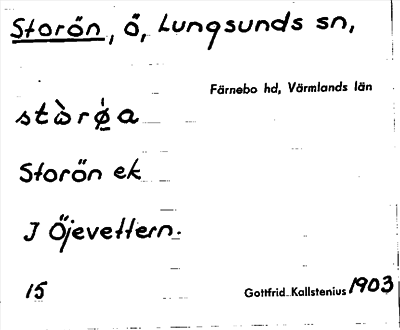 Storön, ö, Lungsunds sn,
Färnebo hd, Värmlands län
stòrø̀a
Storön ek
I Öjevettern.
15
Gottfrid Kallstenius 1903